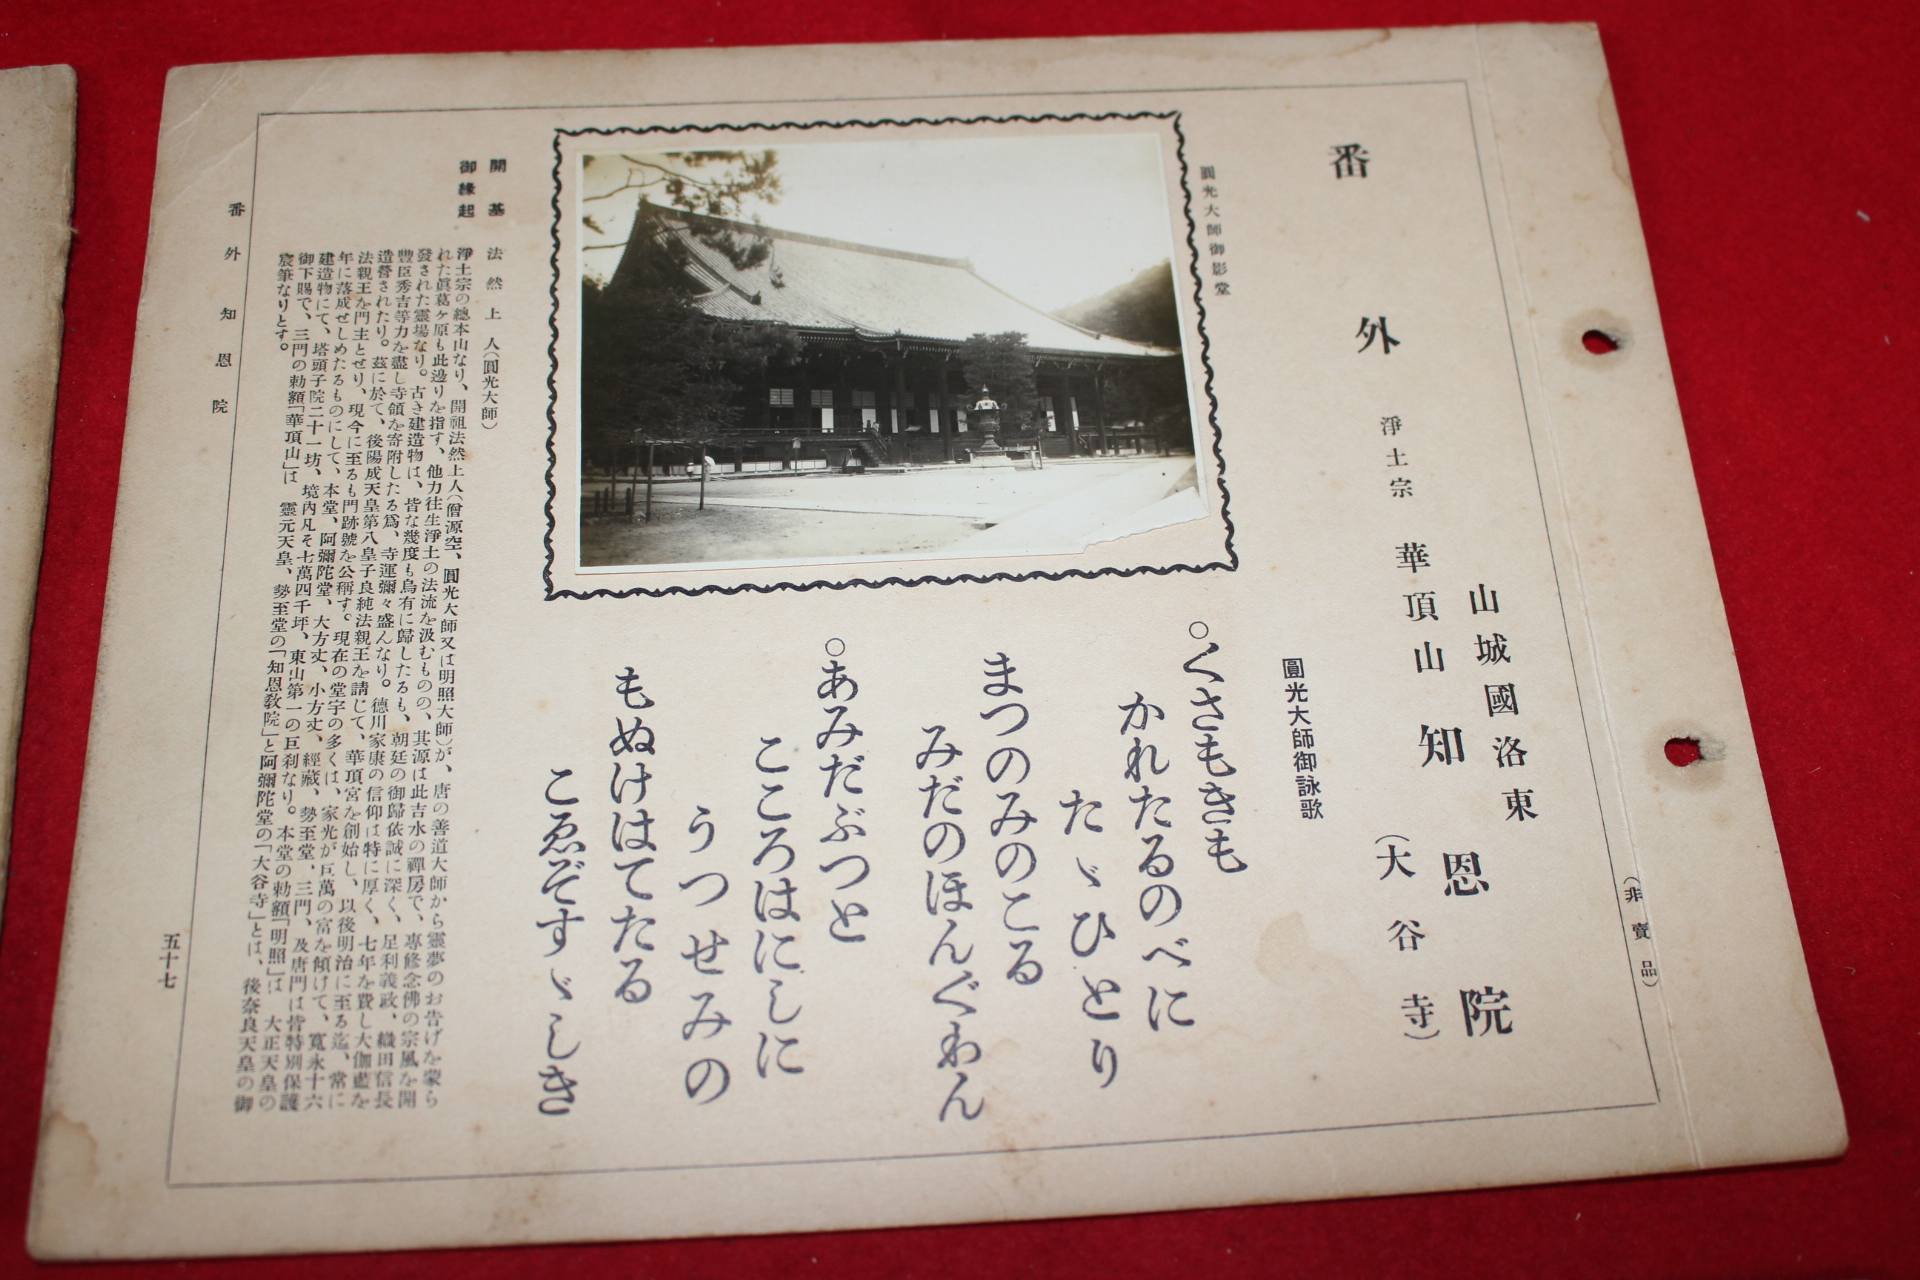 (非賣品)
山城國洛東
番外 淨土宗 華頂山 知恩院
(大谷寺)
圓光大師御詠歌
圓光大師御影堂
○くさもきも
かれたるのべに
たゞひとり
まつのみのこる
みだのほんぐわん
○あみだぶつと
こころはにしに
うつせみの
もぬけはてたる
こゑぞすゞしき
開基 法然上人(圓光大師)
御緣起 淨土宗の總本山なり、開祖法然上人(僧源空、圓光大師又は明照大師)が、唐の善道大師から靈夢のお告げを蒙ら
れた眞葛ヶ原も此邊りを指す、他力往生淨土の法流を汲むものの、其源は此吉水の禪房で、專修念佛の宗風を開
發された靈場なり。古き建造物は、皆な幾度も烏有に歸したるも、朝廷の御歸依誠に深く、足利義政、織田信長
豐臣秀吉等力を盡し寺領を寄附したる爲、寺運彌々盛んなり。德川家康の信仰は特に厚く、七年を費し大伽藍を
造營されたり。茲に於て、後陽成天皇第八皇子良純法親王を請じて、華頂宮を創始し、以後明治に至る迄、常に
法親王を門主とせり、現今に至るも門跡號を公稱す。現在の堂宇の多くは、家光が巨萬の富を傾けて、寬永十六
年に落成せしめたるものにして、本堂、阿彌陀堂、大方丈、小方丈、經藏、勢至堂、三門、及唐門は皆特別保護
建造物にて、塔頭子院二十一坊、境內凡そ七萬四千坪、東山第一の巨刹なり。本堂の勅額「明照」は 大正天皇の
御下賜で、三門の勅額「華頂山」は 靈元天皇、勢至堂の「知恩敎院」と阿彌陀堂の「大谷寺」とは、後奈良天皇の御
宸筆なりとす。
番外 知恩院
五十七